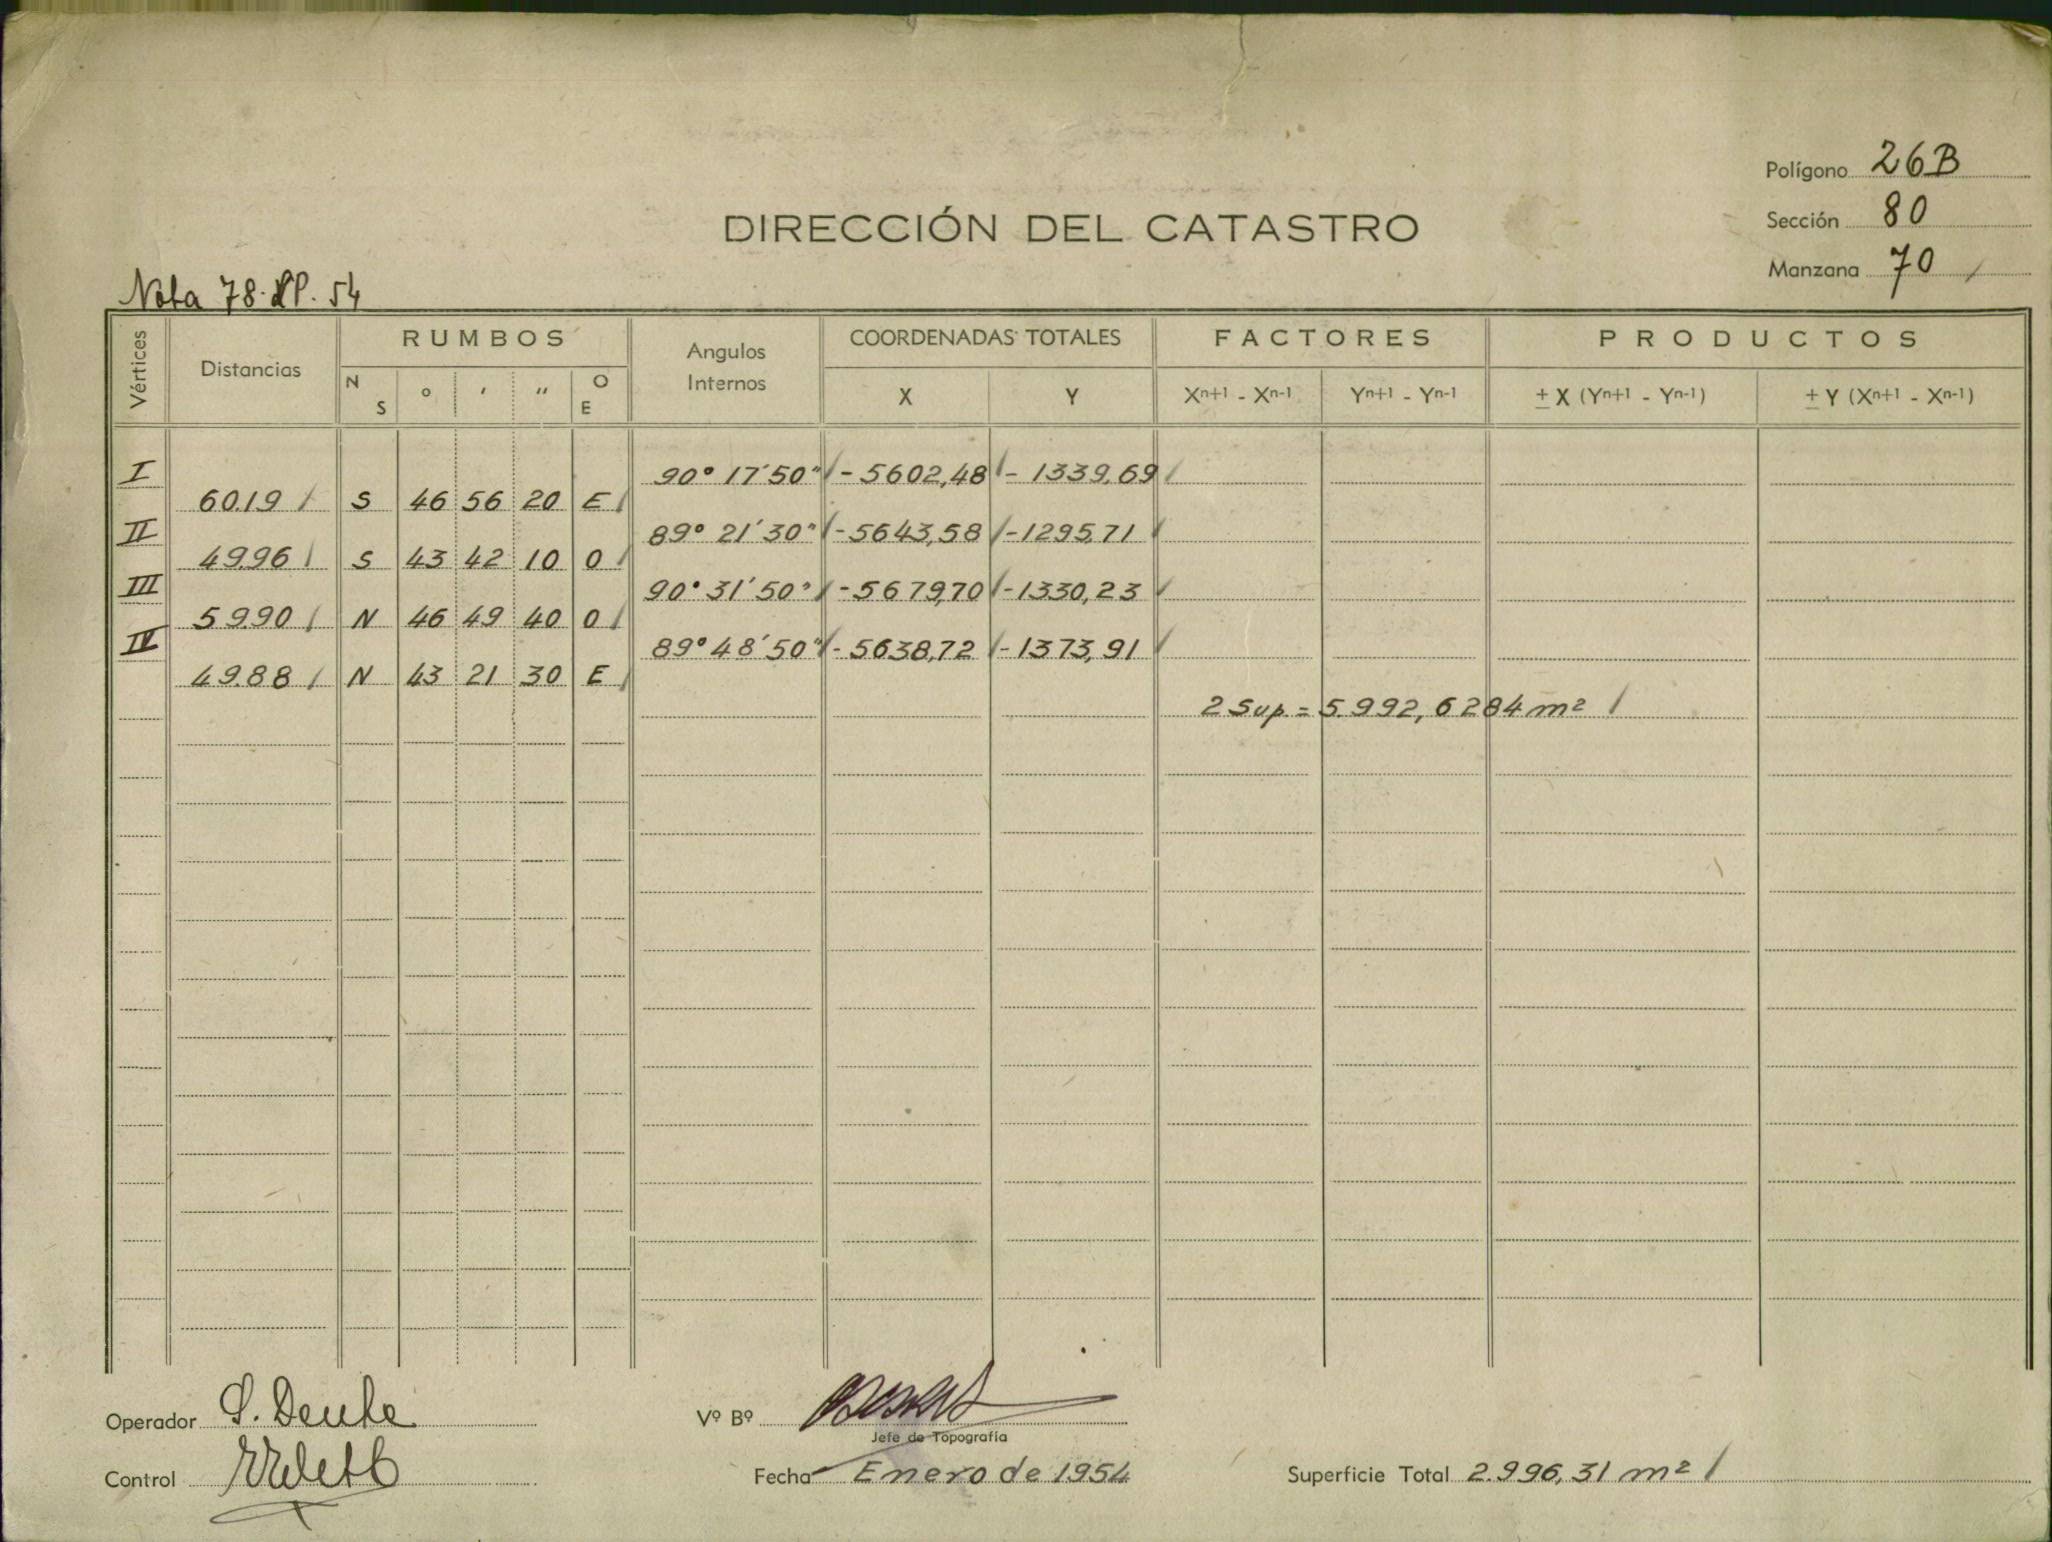 Polígono 26B
Sección 80
DIRECCIÓN DEL CATASTRO
Manzana 70
Nota 78. P. 54
Vértices Distancias RUMBOS Angulos Internos COORDENADAS TOTALES FACTORES PRODUCTOS
N S ° ' " O E X Y Xn+1 - Xn-1 Yn+1 - Yn-1 ± X (Yn+1 - Yn-1) ± Y (Xn+1 - Xn-1)
I 90° 17' 50" - 5602,48 - 1339,69
60.19 S 46 56 20 E
II 89° 21' 30" - 5643,58 - 1295,71
49.96 S 43 42 10 O
III 90° 31' 50" - 5679,70 - 1330,23
59.90 N 46 49 40 O
IV 89° 48' 50" - 5638,72 - 1373,91
49.88 N 43 21 30 E
2 Sup. = 5.992,6284 m²
Operador Vº Bº
Jefe de Topografía
Control Fecha Enero de 1954 Superficie Total 2.996,31 m²